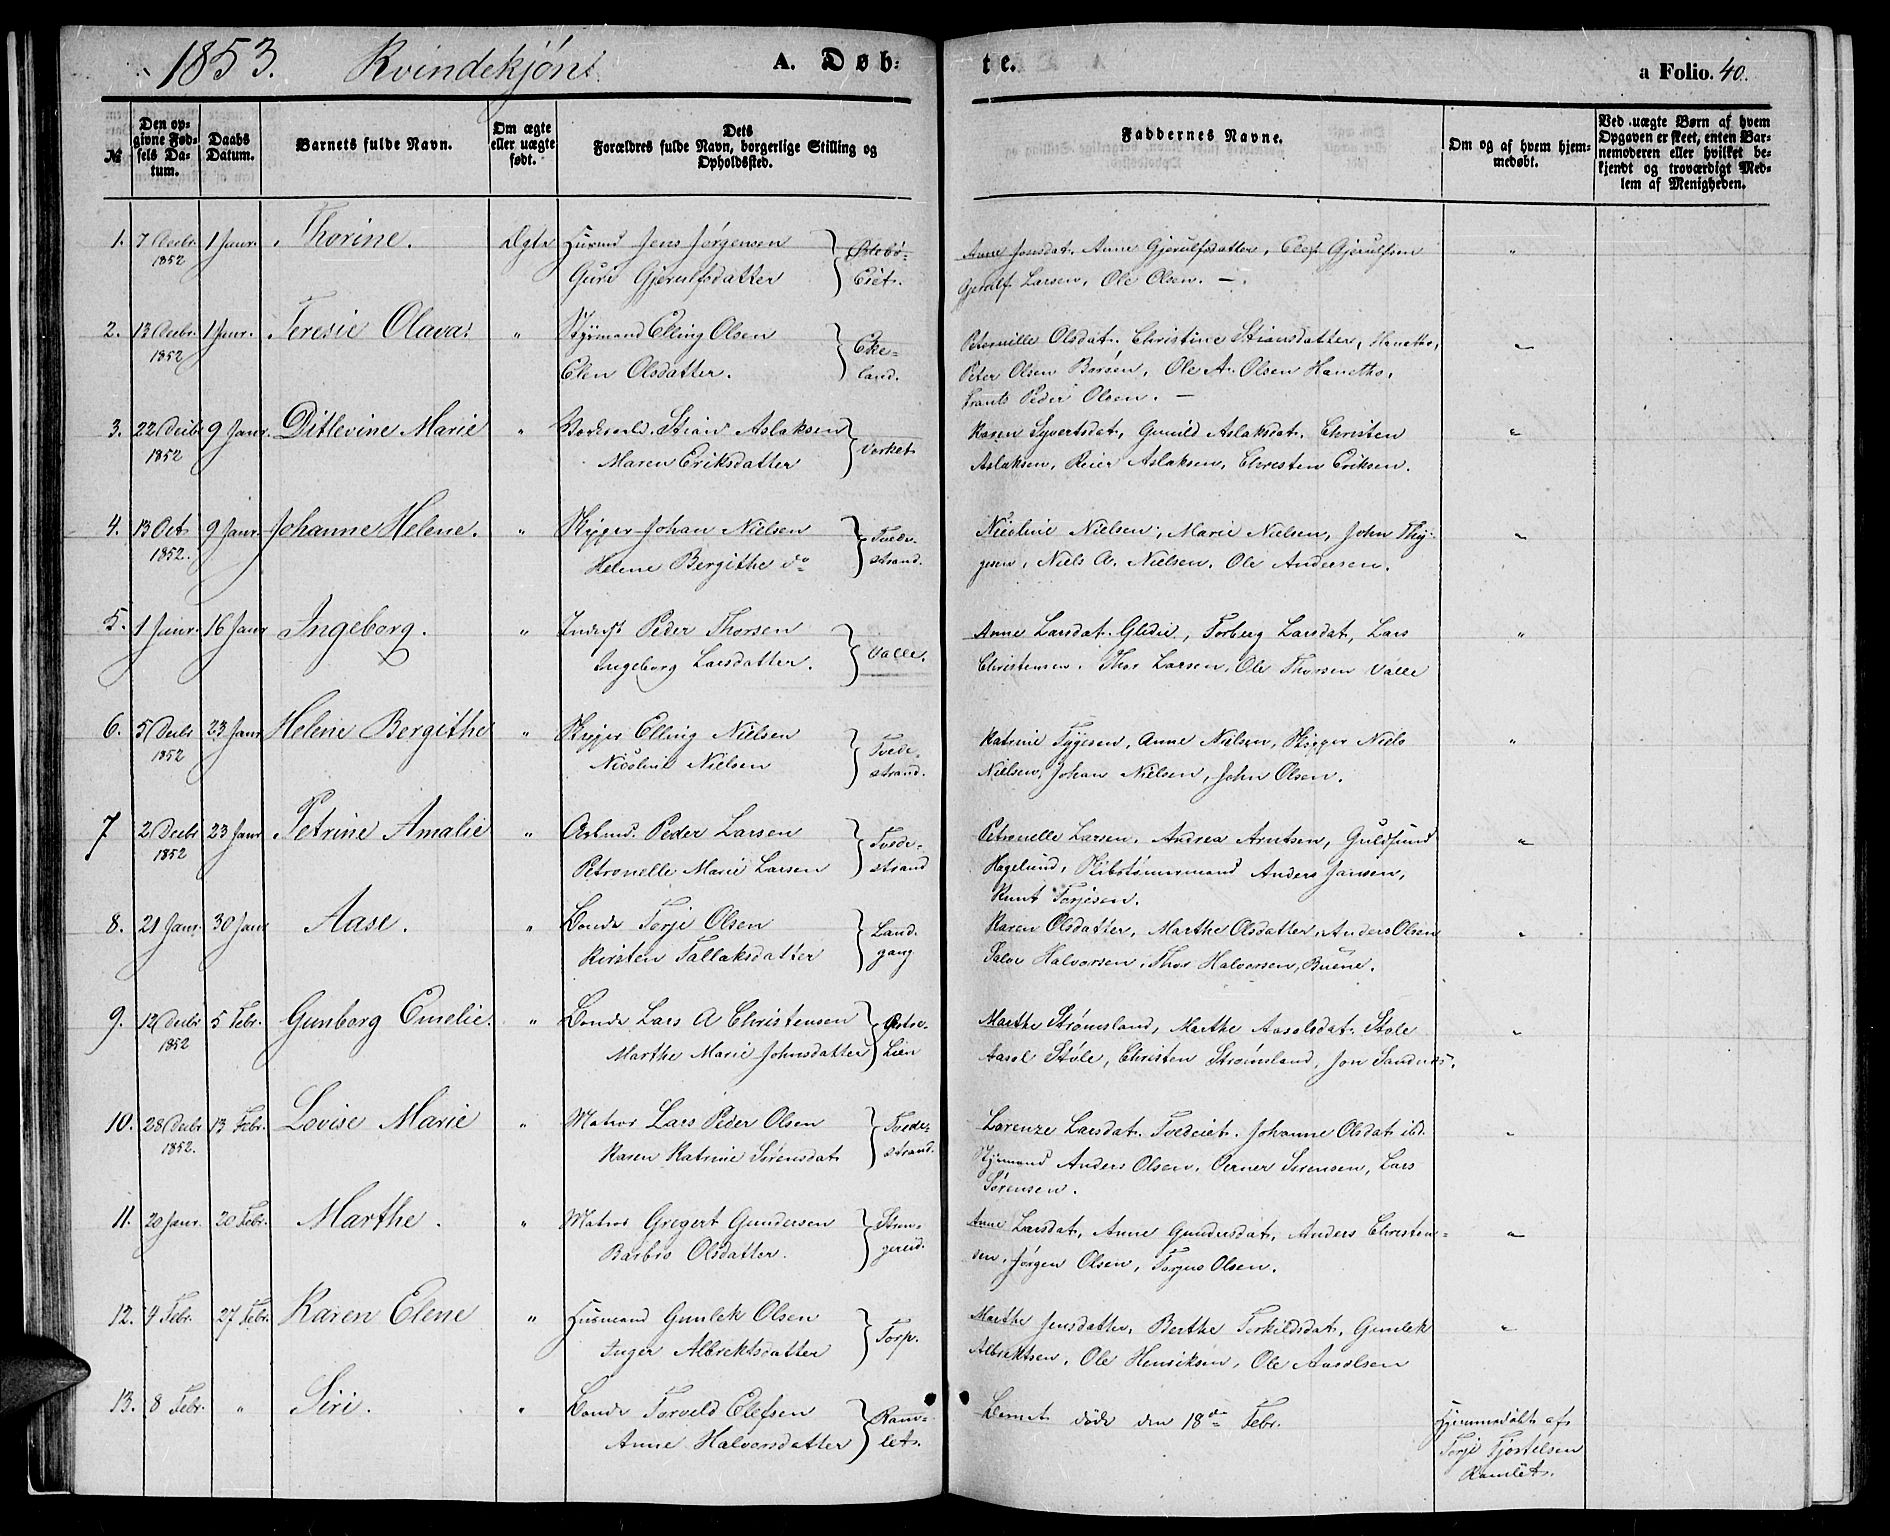 1853. Kvindekjøn. A. Døb- te. a Folio. 40.
№
Den op-
givne Fød-
sels Da-
tum.
Daabs
Datum.
Barnets fulde Navn.
Om ægte
eller uægte
født.
Dets
Forældres fulde Navn, borgerlige Stilling og
Opholdssted.
Faddernes Navne.
Om og af hvem hjem-
medøbt.
Ved uægte Børn af hvem
Opgaven er skeet, enten Bar-
nemoderen eller hvilket be-
kjendt og troværdigt Med-
lem af Menigheden.
1. 7 Decbr 1 Janr. Thorine. Ægte Husmd Jens Jørgensen
1852 Guro Gjerulfsdatter Eiet.
Anne Jonsdat. Anne Gjerulfsdatter, Olef Gjerulfsen
Gjerulf Larsen, Ole Olsen. —. "
2. 13 Decbr. 1 Janr. Teresie Olava. " Styrmand Elling Olsen Eke-
1852 Elen Olsdatter. land.
Olsdat. Christine Stiansdatter, Hanetho,
Peter Olsen Borsen, Ole A. Olsen Hanetho,
Frants Peder Olsen. — "
3. 22 Decbr 9 Janr. Ditlevine Marie " Stian Aslaksen
1852 Maren Eriksdatter Verket.
Karen Syvertsdat, Gunild Aslaksdat. Christen
Aslaksen, Reier Aslaksen, Christen Eriksen. "
4. 13 Oct 9 Janr. Johanne Helene. " Skipper Johan Nielsen Tvede-
1852. Helene Bergithe do strand.
Nicoline Nielsen, Marie Nielsen, John Thy-
gesen, Niels A. Nielsen. Ole Andersen. "
5. 1 Janr. 16 Janr Ingeborg. " Inderst Peder Thorsen
Ingeborg Larsdatter. Valle.
Anne Larsdat. Torbieg Larsdat, Lars
Christensen. Thor Larsen, Ole Thorsen Valle "
6. 5 Decbr 23 Janr Helene Bergithe " Skipper Elling Nielsen Tvede-
1852 Nicoline Nielsen strand.
Katrine Tygesen, Anne Nielsen, Skipper Niels
Nielsen, Johan Nielsen, John Olsen. "
7 2 Decbr 23 Janr Petrine Amalie " Arbmd. Peder Larsen Tvede-
1852 Petronelle Marie Larsen strand
Petronelle Larsen. Andrea Arntsen, Guldsmed
Hagelund, Skibstømmermand Anders Jansen,
Knut Torjesen. "
8. 21 Janr. 30 Janr Aase. " Bonde Torje Olsen Land-
Kirsten Tallaksdatter gang
Karen Olsdatter, Marthe Olsdatter, Anders Olsen
Salve Halvorsen. Thor Halvorsen, Buene. "
9. 12 Decbr 5 Febr. Gunborg Emelie. " Bonde Lars A Christensen Østre-
1852 Marthe Marie Johnsdatter Lien
Marthe Strømsland, Marthe Aasolsdat. Støle
Aasol Støle, Christen Strømsland, Jon Sandnes. "
10. 28 Decbr 13 Febr. Lovise Marie " Matros Lars Peder Olsen Tvede-
1852. Karen Katrine Sørensdat strand.
Lorenze Larsdat. Tvedeiet. Johanne Olsdat ibd.
Styrmand Anders Olsen. Verner Sørensen, Lars
Sørensen. "
11. 20 Janr. 20 Febr. Marthe. " Matros Gregert Gundersen Stren-
Barbro Olsdatter. gereid.
Anne Larsdat, Anne Gundersdat, Anders Christen-
sen, Jørgen Olsen, Torjus Olsen. "
12. 4 Febr. 27 Febr. Karen Elene " Husmand Gunlek Olsen
Inger Albrektsdatter Torp.
Marthe Jensdatter, Berthe Terkildsdat, Gunlek
Albrektsen, Ole Henriksen, Ole Aasolsen "
13. 8 Febr. " Siri. " Bonde Torveld Olefsen Ram-
Anne Halvorsdatter let.
Barnet døde den 18de Febr. Hjemmedøbt af
Torje Tjostelsen
Ramlet.